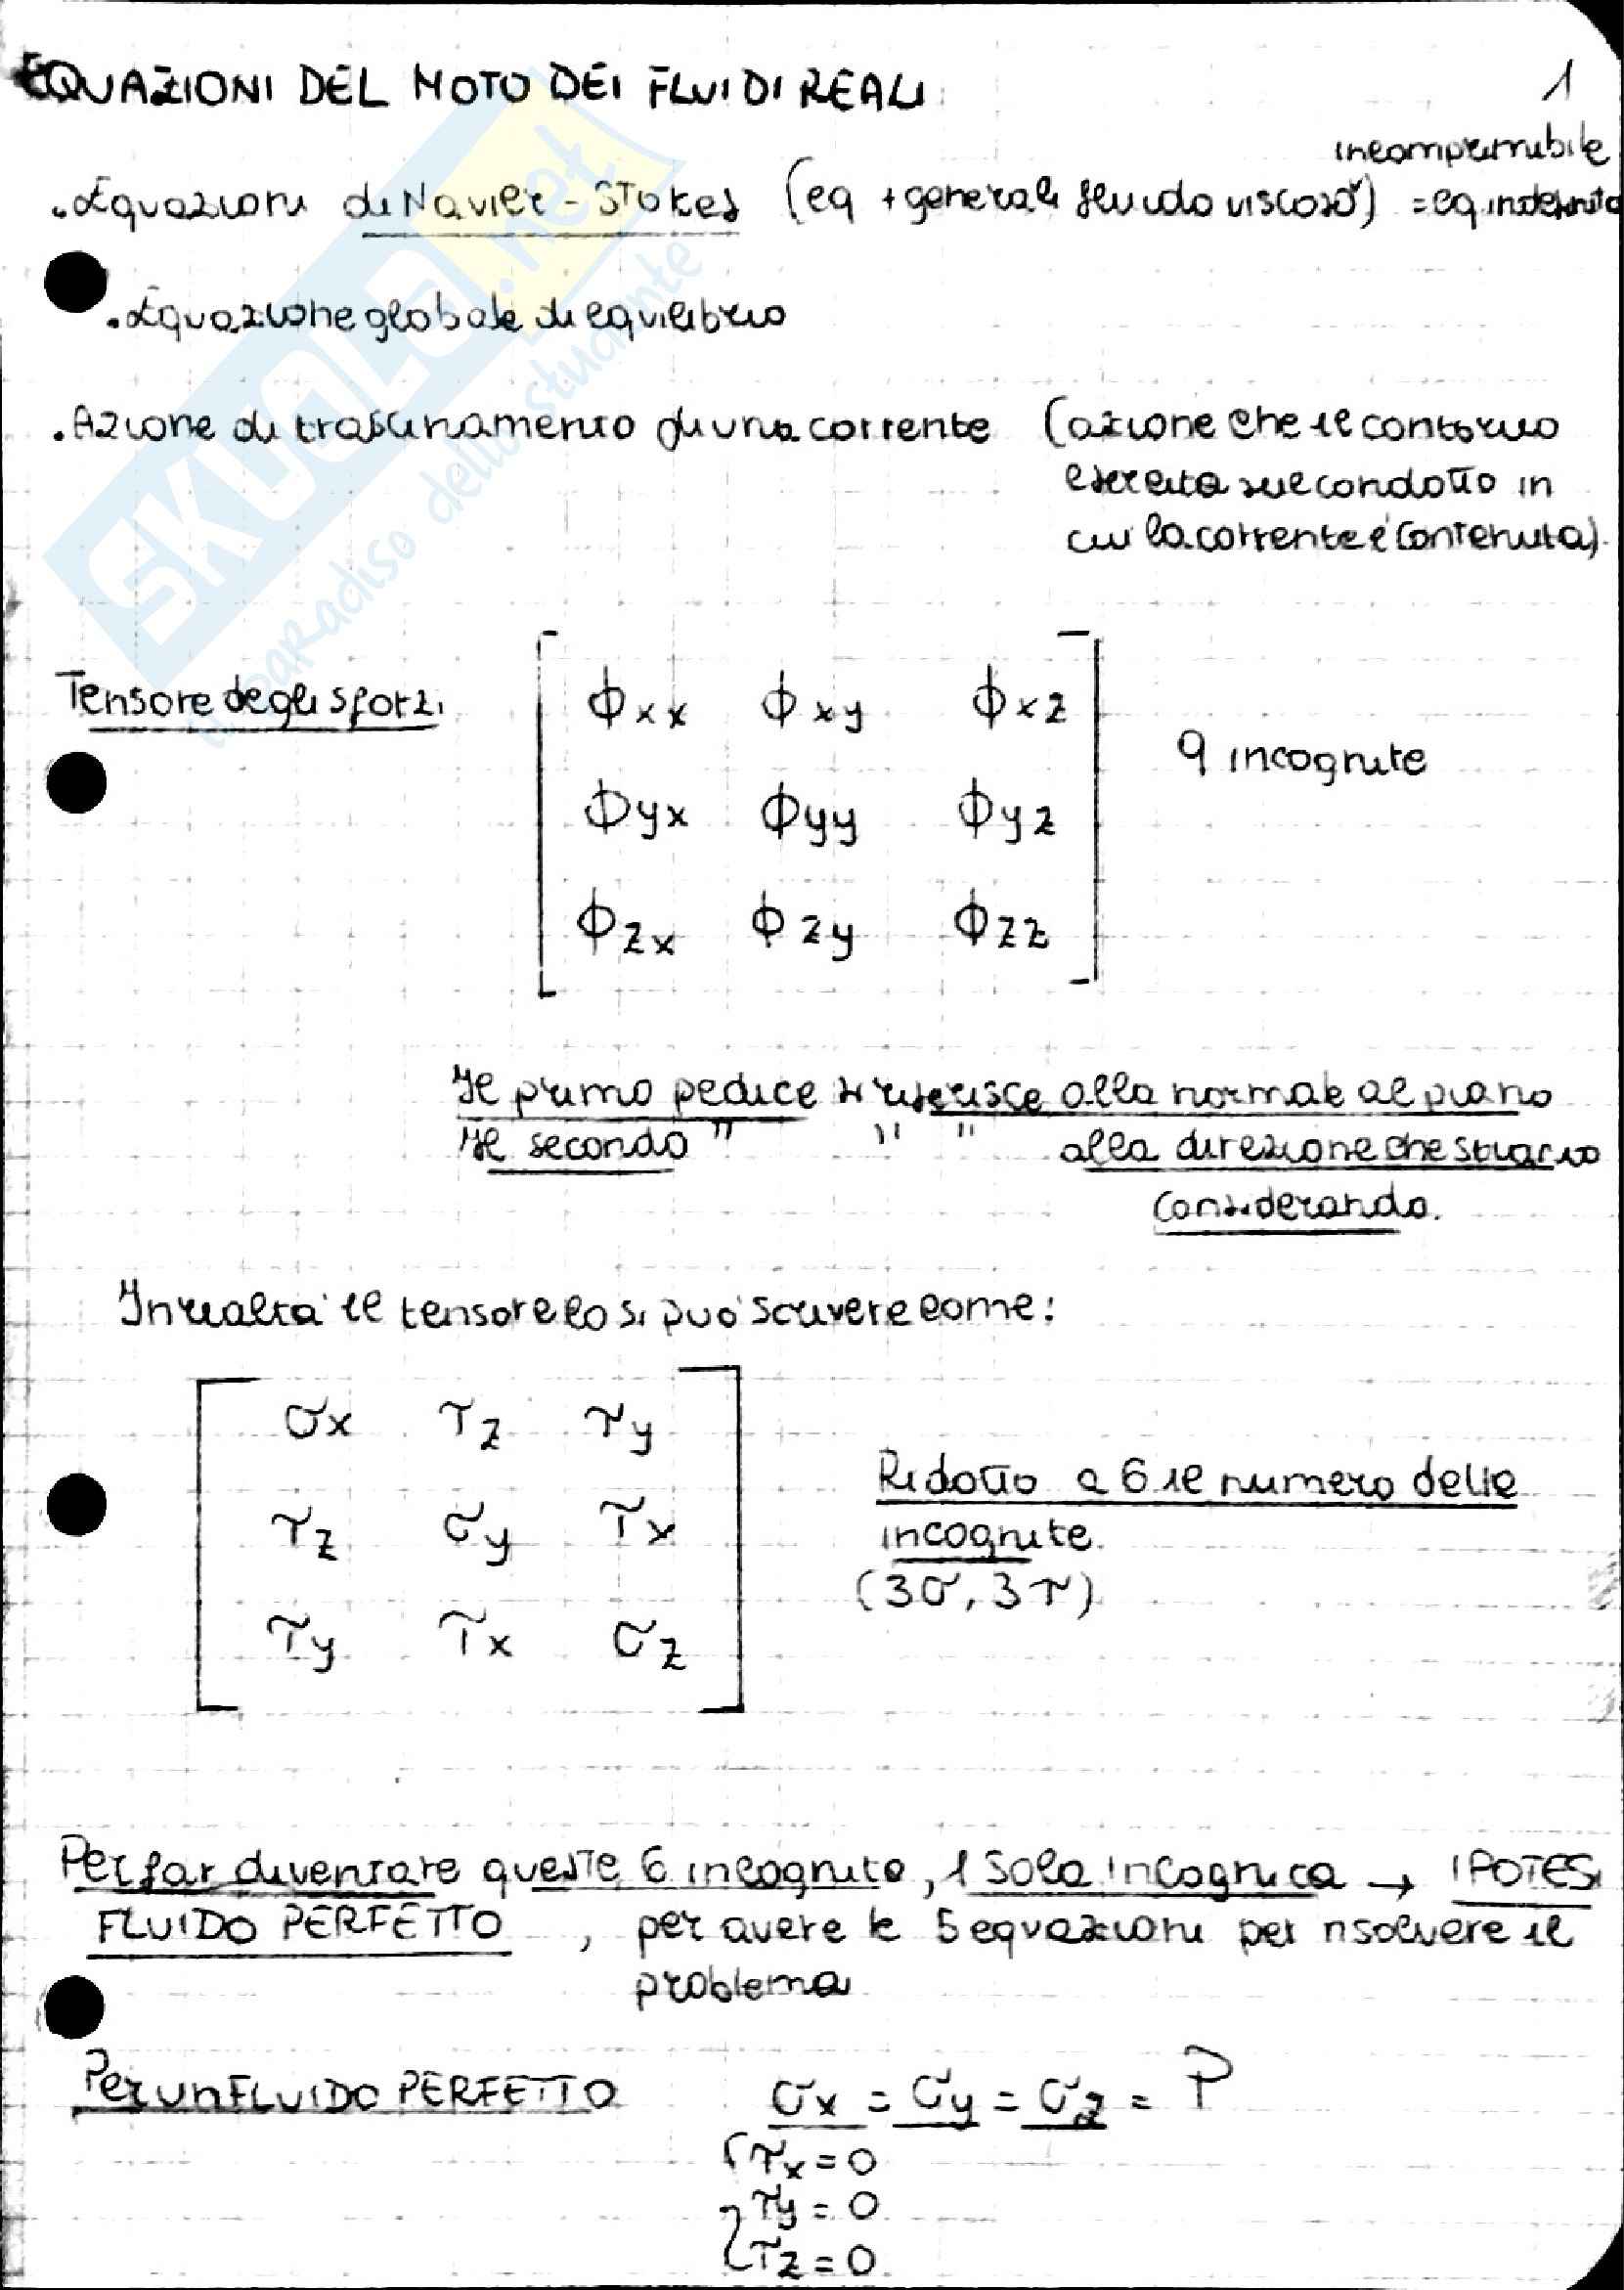 EQUAZIONI DEL MOTO DEI FLUIDI REALI
1
incomprimibile
. Equazioni di Navier-Stokes (eq + generali fluido viscoso) = eq. indefinita
. Equazione globale di equilibrio
. Azione di trascinamento di una corrente (azione che il contorno
esercita sul condotto in
cui la corrente è contenuta).
Tensore degli sforzi
ϕxx ϕxy ϕxz
9 incognite
ϕyx ϕyy ϕyz
ϕzx ϕzy ϕzz
Il primo pedice si riferisce alla normale al piano
Il secondo " " " alla direzione che stiamo
considerando.
In realtà il tensore lo si può scrivere come:
σx τz τy
τz σy τx
τy τx σz
Ridotto a 6 il numero delle
incognite.
(3σ, 3τ)
Per far diventare queste 6 incognite, 1 sola incognita → IPOTESI
FLUIDO PERFETTO, per avere le 5 equazioni per risolvere il
problema
Per un FLUIDO PERFETTO σx = σy = σz = P
τx = 0
τy = 0
τz = 0
SKUOLA.net
il paradiso dello studente